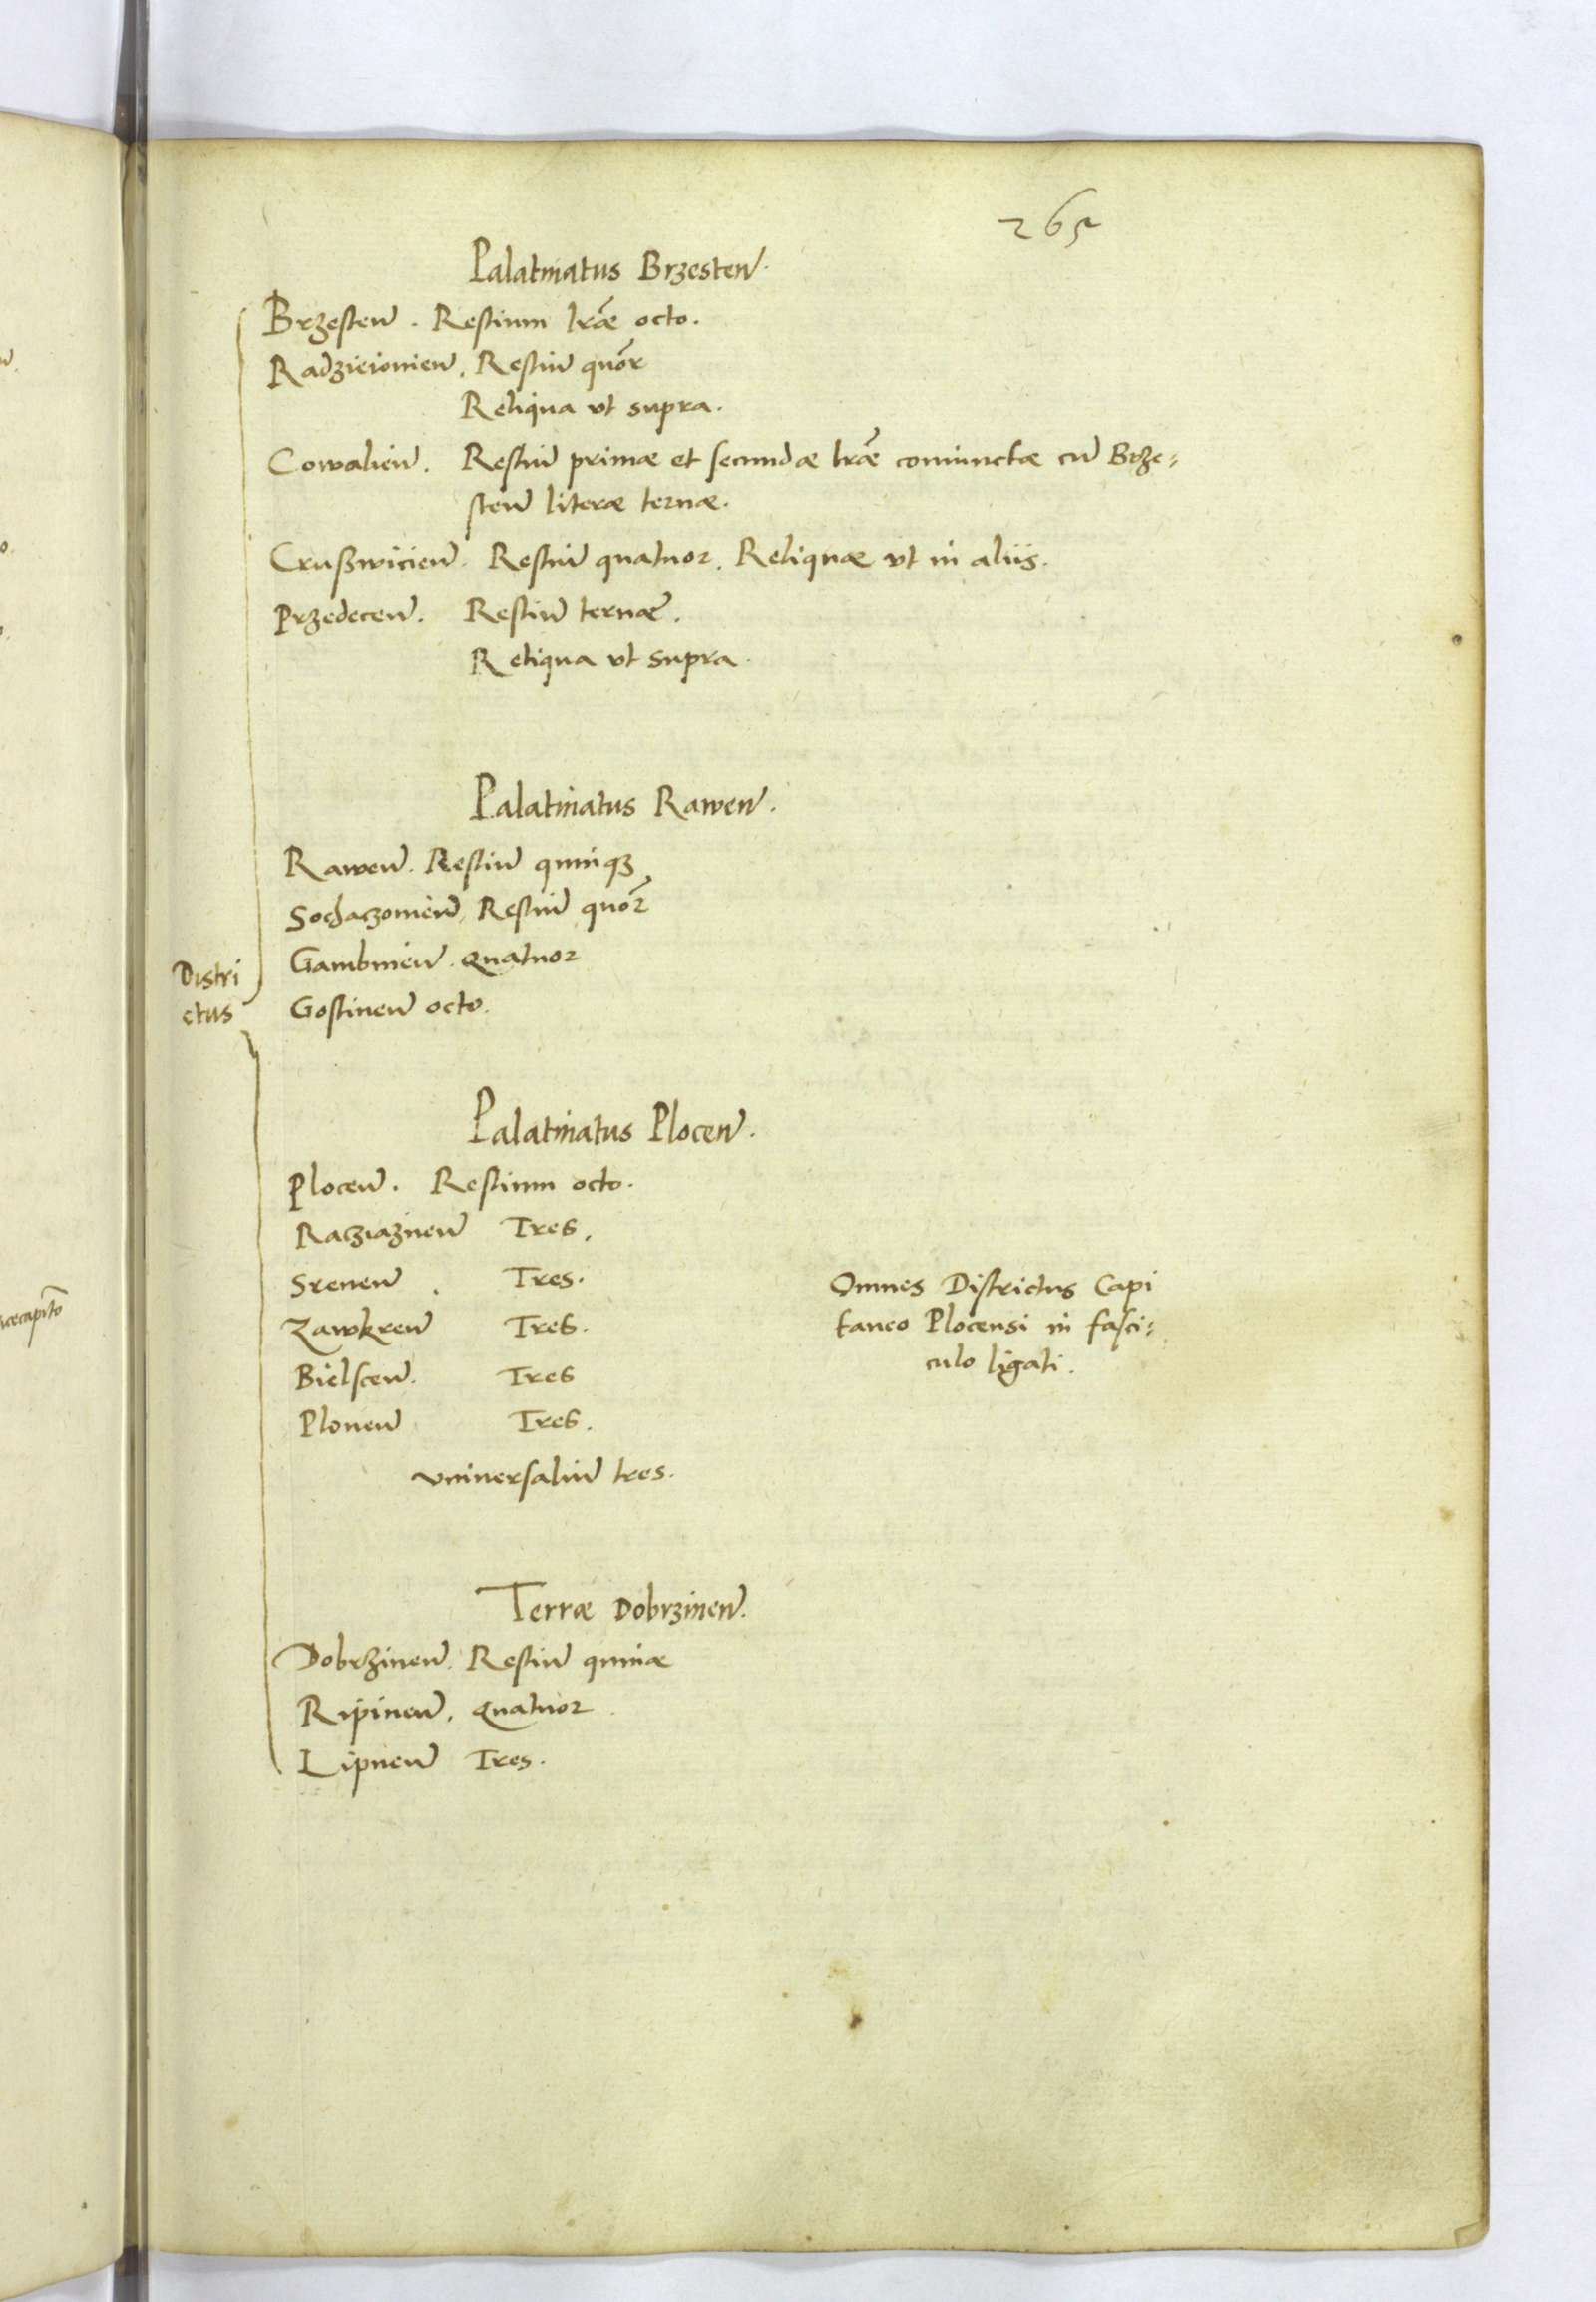 265
Palatinatus Brzesten̄.
Brzesten̄. Restium lr̃æ octo.
Radzieiowien̄. Restiū quor̃
Reliqua vt supra.
Cowalien̄. Restiū primæ et secundæ lr̃æ coniunctæ cū Brze=
sten̄ literæ ternæ.
Crusswicien̄. Restiū quatuor. Reliquæ vt in aliis.
Przedecen̄. Restiū ternæ.
Reliqua vt supra.
Palatinatus Rawen̄.
Rawen̄. Restiū quinqz
Sochaczowien̄, Restiū quor̃
Gambinien̄. quatuor
Distri
ctus
Gostinen̄ octo.
Palatinatus Plocen̄.
Plocen̄. Restium octo.
Racziaznen̄ Tres.
Srenen̄. Tres.
Zawkren̄ Tres.
Bielscen̄. Tres
Plonen̄ Tres.
vniuersaliū tres.
Omnes Districtus Capi
taneo Plocensi in fasci=
culo ligati.
Terræ Dobrzinen̄.
Dobrzinen̄. Restiū quinæ
Ripinen̄. quatuor
Lipnen̄ Tres.